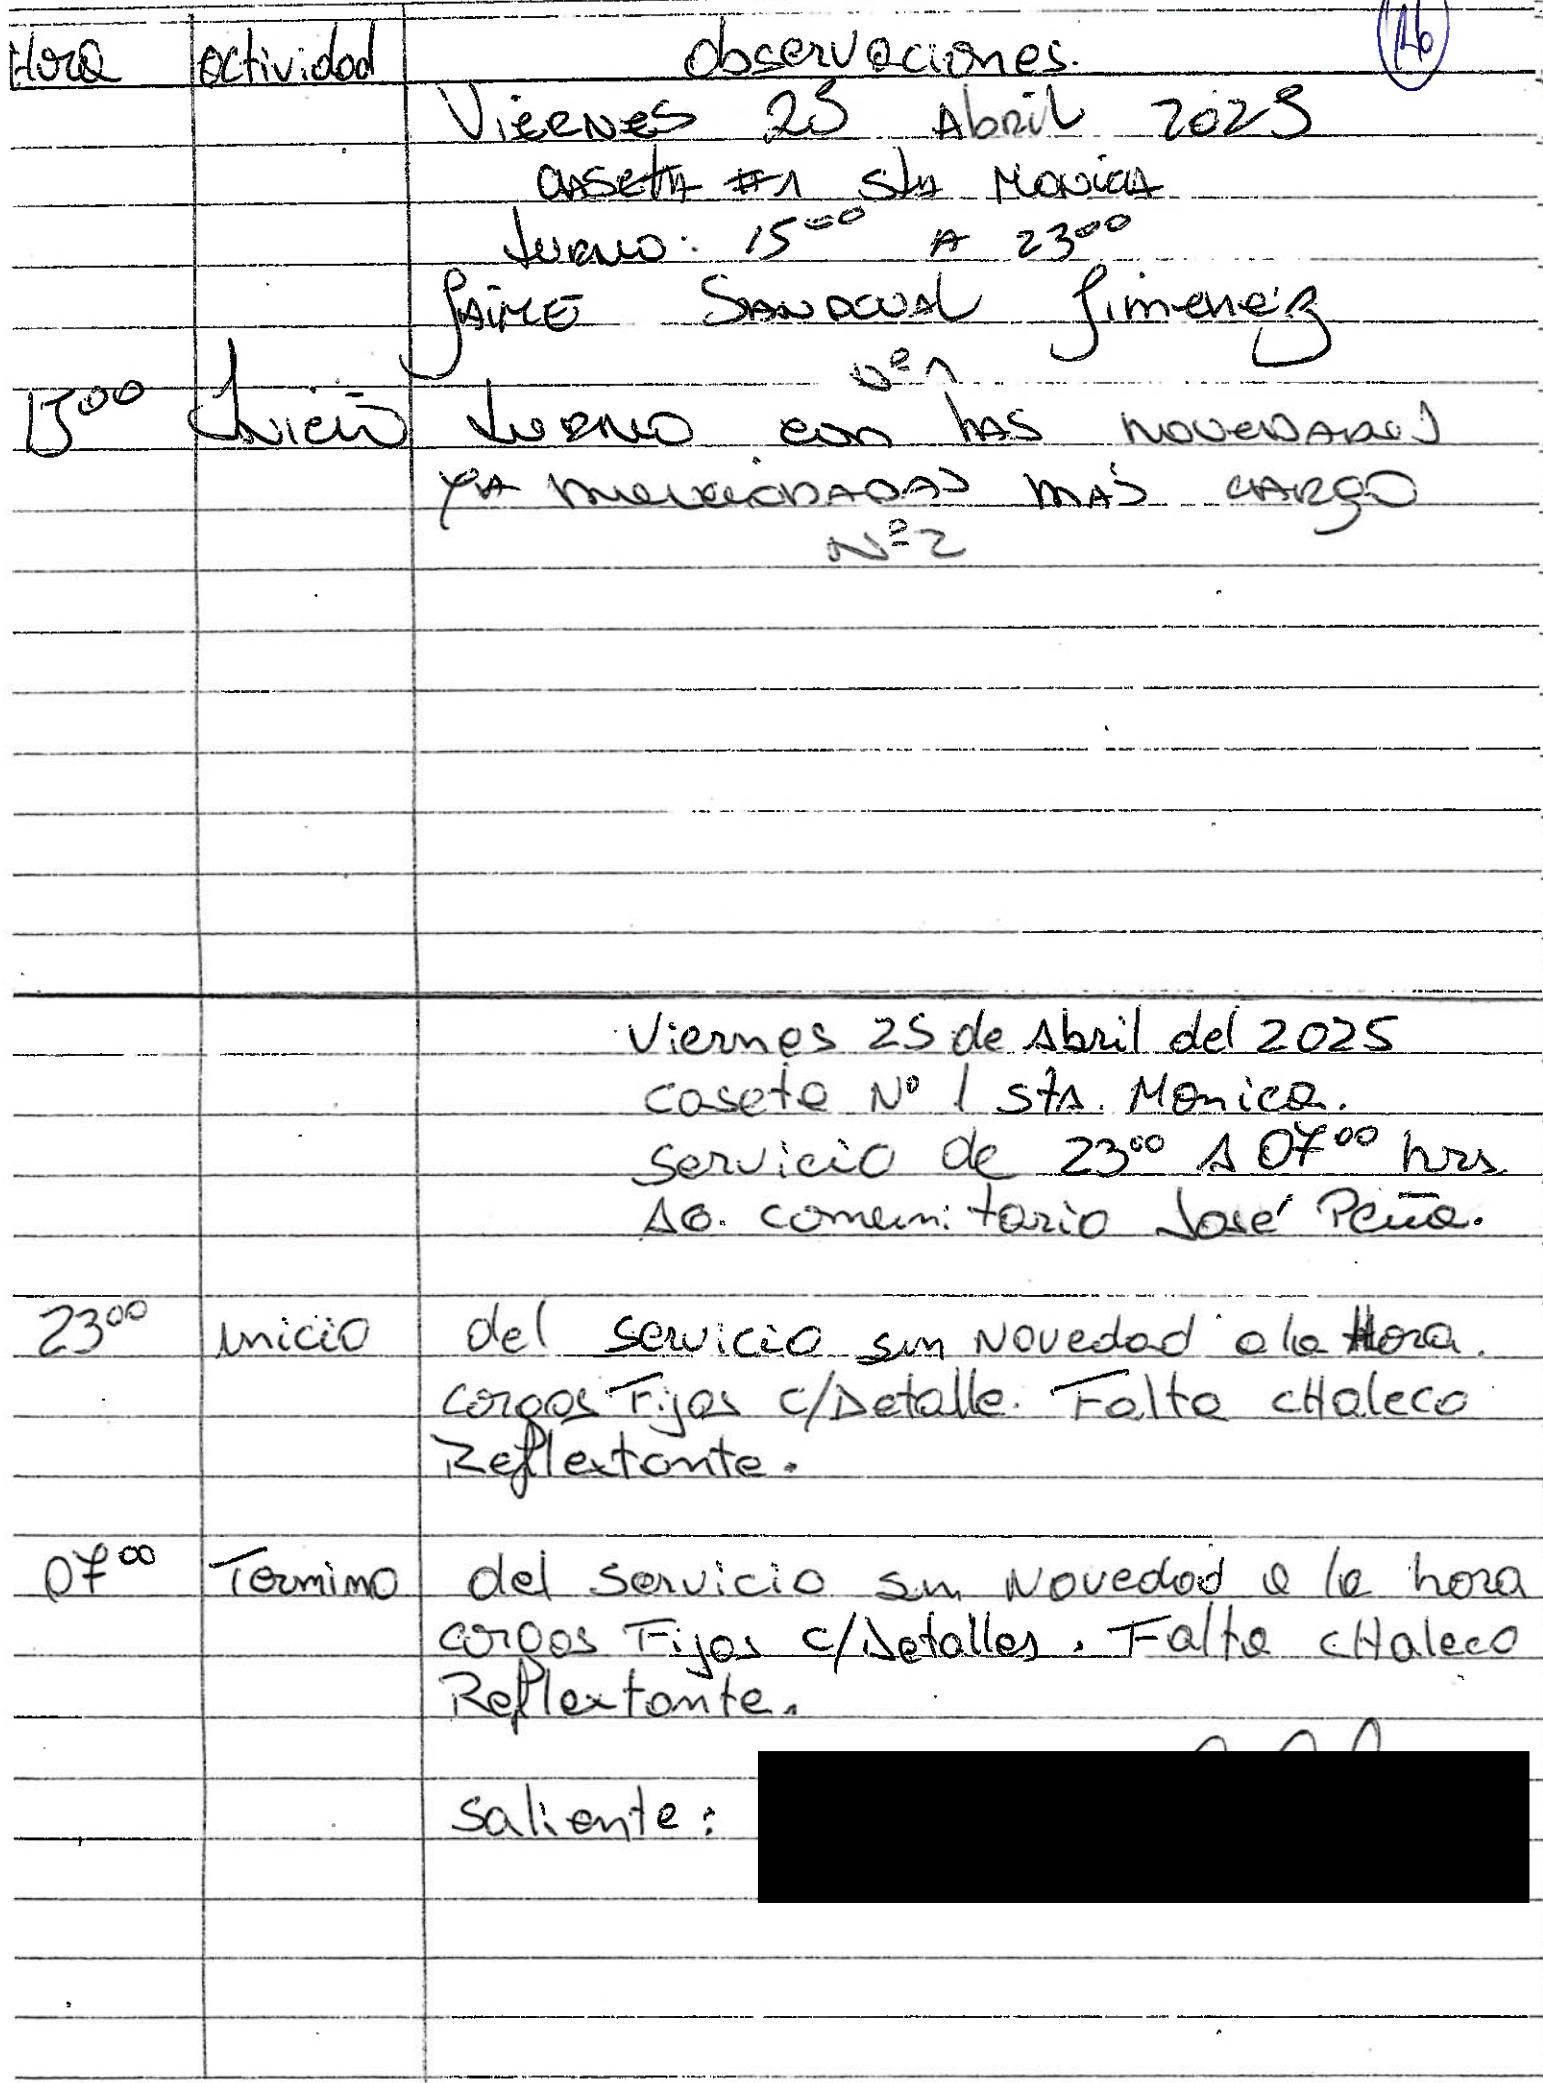 16
Hora actividad observaciones.
Viernes 25 Abril 2025
caseta #1 Sta Monica
turno: 15⁰⁰ A 23⁰⁰
Jaime Sandoval Jimenez
Nº 1
15⁰⁰ Inicio turno con las novedades
ya mencionadas más cargo
Nº 2
Viernes 25 de Abril del 2025
caseta Nº 1 Sta. Monica.
Servicio de 23⁰⁰ A 07⁰⁰ hrs
AG. comunitario José Peña.
23⁰⁰ inicio del servicio sin Novedad a la Hora.
cargos Fijos c/Detalle. Falta cHaleco
Reflextante.
07⁰⁰ Termino del servicio sin Novedad a la hora
cargos Fijos c/Detalles. Falta cHaleco
Reflextante.
Saliente: